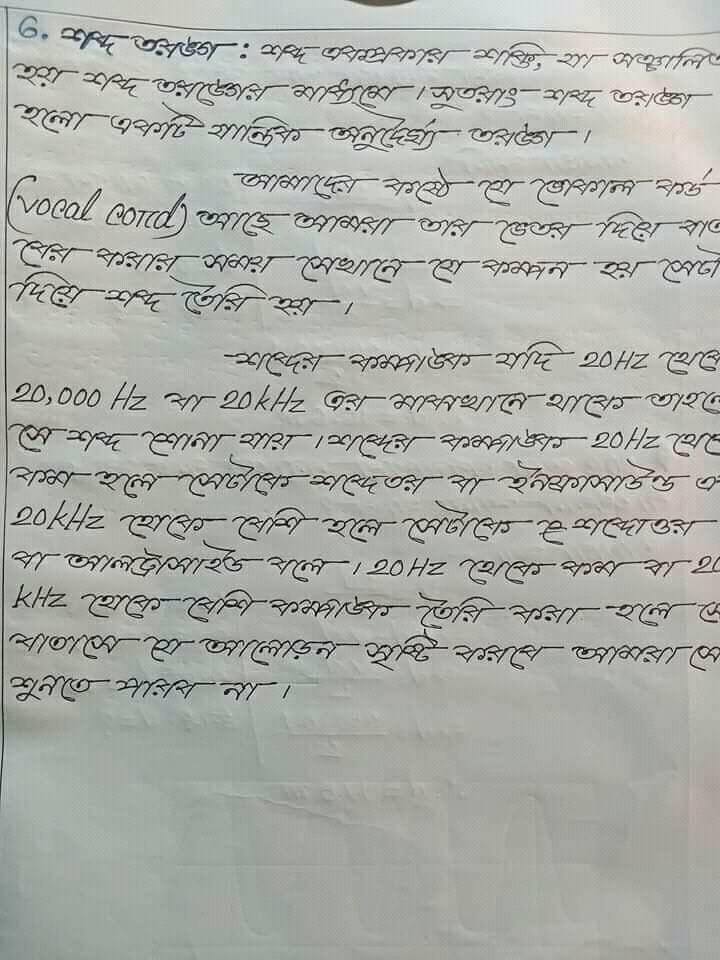 6. শব্দ তরঙ্গ : শব্দ একপ্রকার শক্তি, যা সঞ্চালিত
হয় শব্দ তরঙ্গের মাধ্যমে । সুতরাং শব্দ তরঙ্গ
হলো একটি যান্ত্রিক অনুদৈর্ঘ্য তরঙ্গ ।
আমাদের কন্ঠে যে ভোকাল কর্ড
(vocal cord) আছে আমরা তার ভেতর দিয়ে বাত
বের করার সময় সেখানে যে কম্পন হয় সেটা
দিয়ে শব্দ তৈরি হয় ।
শব্দের কম্পাঙ্ক যদি 20Hz থেকে
20,000 Hz বা 20kHz এর মাঝখানে থাকে তাহলে
সে শব্দ শোনা যায় । শব্দের কম্পাঙ্ক 20Hz থেকে
কম হলে সেটাকে শব্দেতর বা ইনফ্রাসাউন্ড এ
20kHz থেকে বেশি হলে সেটাকে শব্দোত্তর
বা আলট্রাসাউন্ড বলে । 20Hz থেকে কম বা 20
kHz থেকে বেশি কম্পাঙ্ক তৈরি করা হলে সে
বাতাসে যে আলোড়ন সৃষ্টি করবে আমরা সে
শুনতে পারব না ।